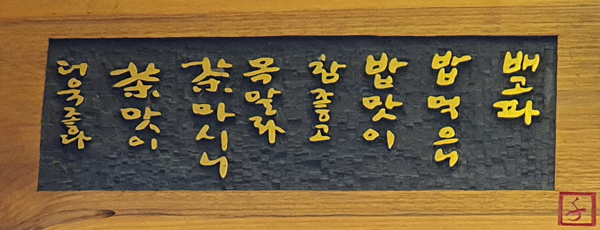 배고파
밥 먹으니
밥맛이
참 좋고
목말라
茶 마시니
茶 맛이
더욱 좋다